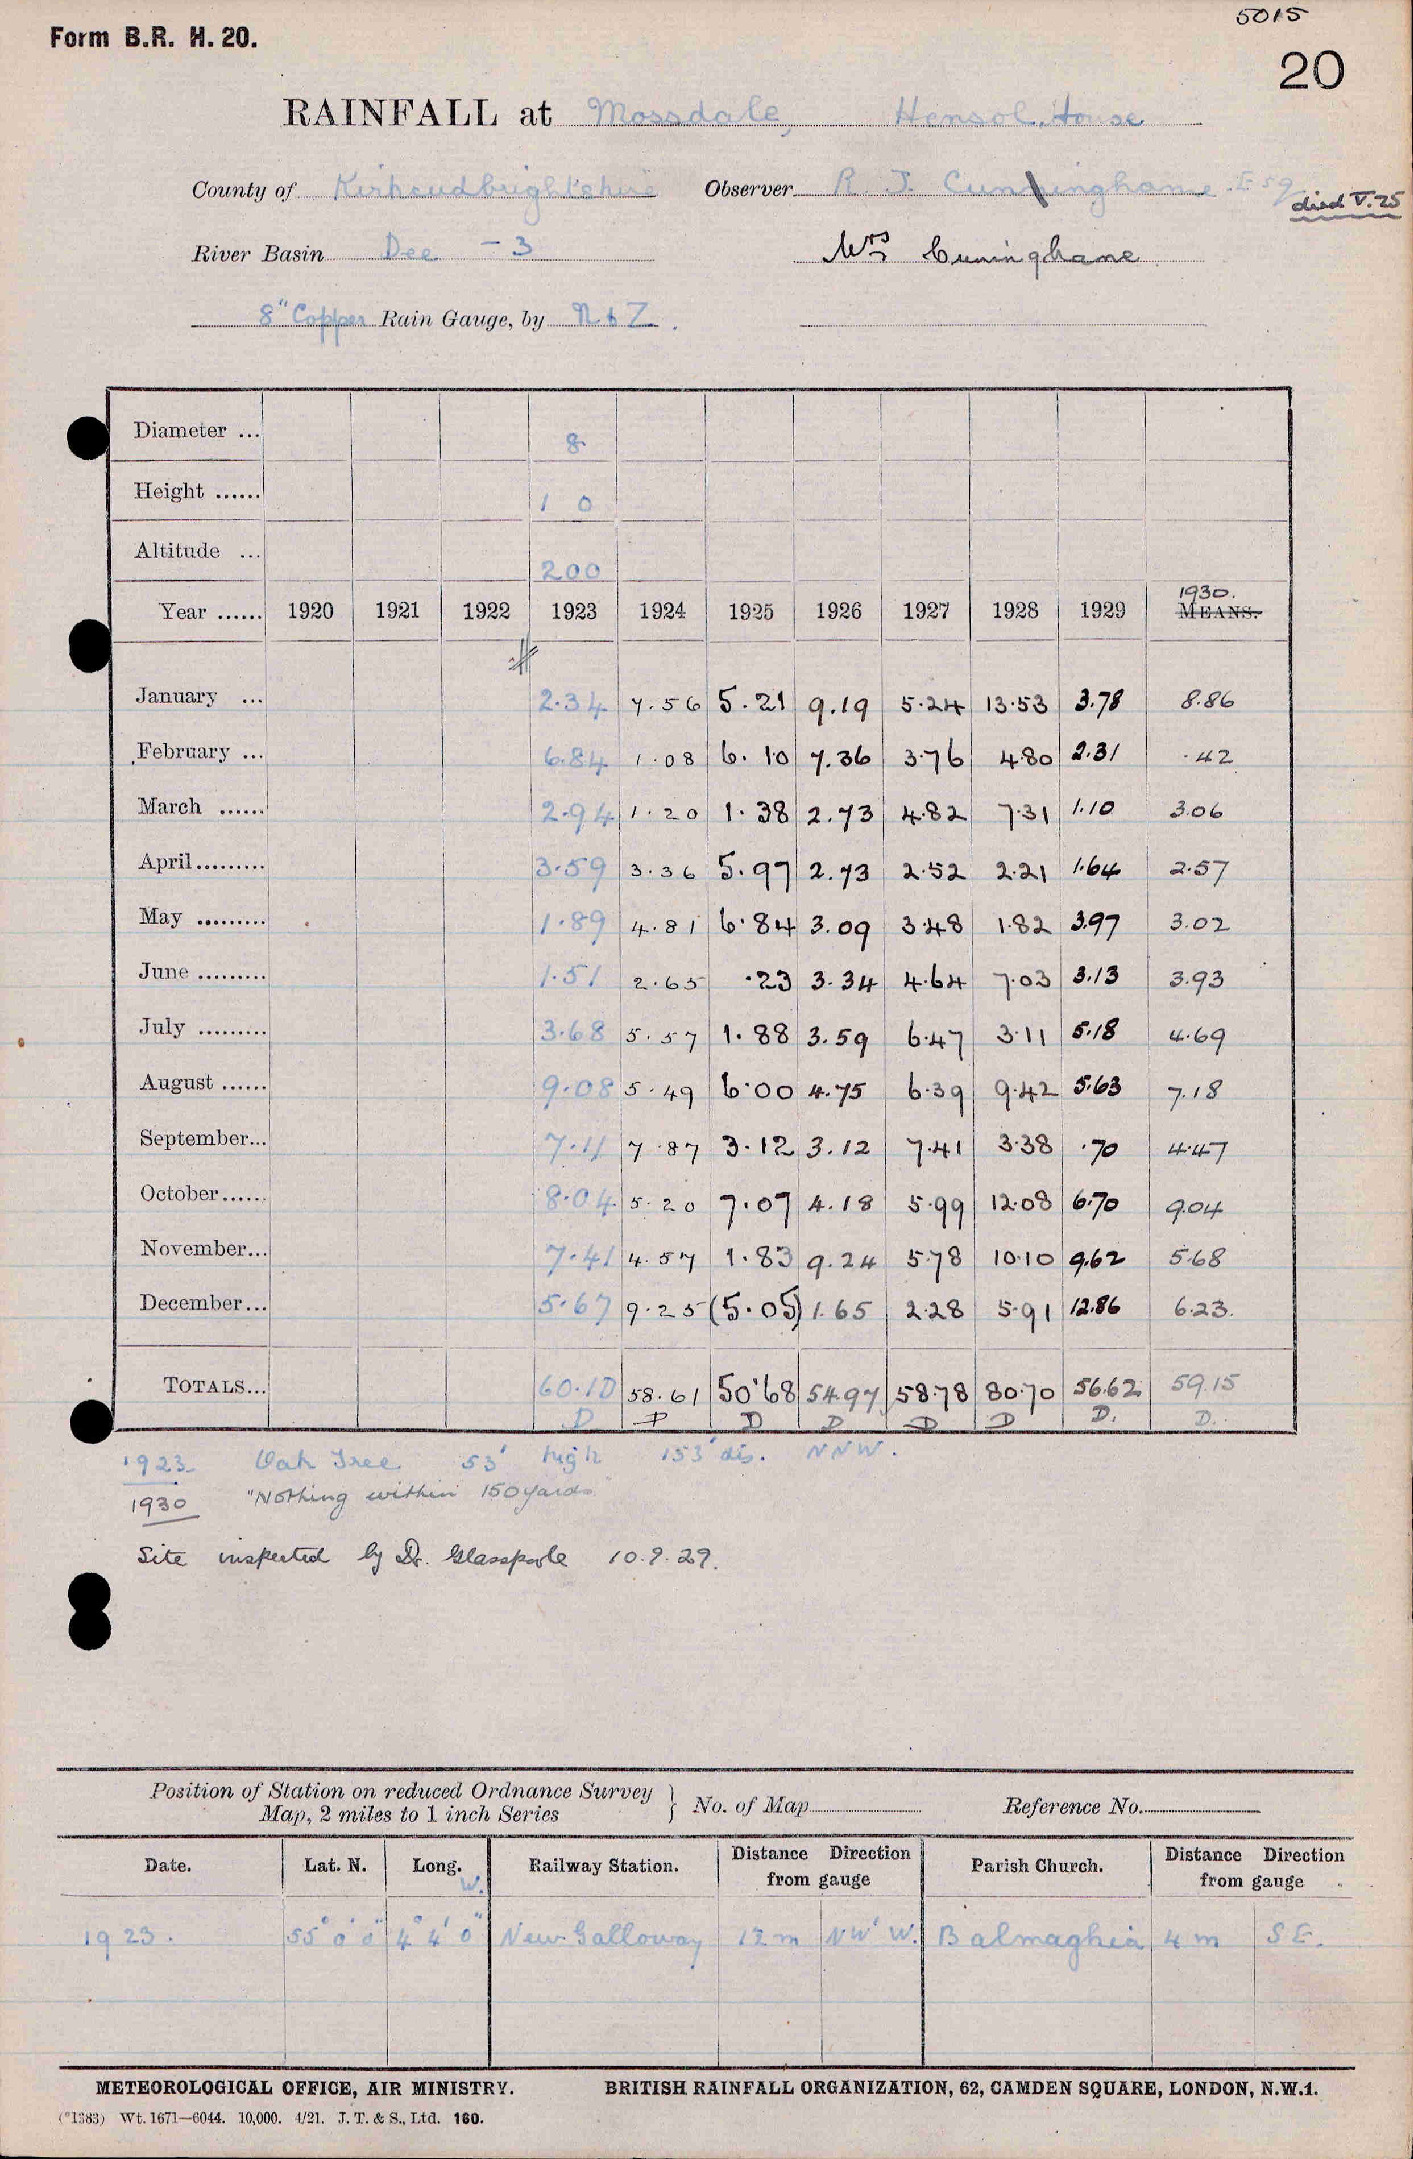 5015
Form B.R. H. 20.
20
RAINFALL at Mossdale, Hensol House
County of Kirkcudbrightshire Observer R. J. Cunninghame Esq died V.25
River Basin Dee - 3 Mrs Cuninghame
8" Copper Rain Gauge, by N & Z.
Diameter ... 8
Height ...... 1 0
Altitude ... 200
1930.
Year ...... 1920 1921 1922 1923 1924 1925 1926 1927 1928 1929 MEANS.
January ... 2.34 7.56 5.21 9.19 5.24 13.53 3.78 8.86
February ... 6.84 1.08 6.10 7.36 3.76 4.80 2.31 .42
March ...... 2.94 1.20 1.38 2.73 4.82 7.31 1.10 3.06
April......... 3.59 3.36 5.97 2.73 2.52 2.21 1.64 2.57
May ......... 1.89 4.81 6.84 3.09 3.48 1.82 3.97 3.02
June ......... 1.51 2.65 .23 3.34 4.64 7.03 3.13 3.93
July ......... 3.68 5.57 1.88 3.59 6.47 3.11 5.18 4.69
August ...... 9.08 5.49 6.00 4.75 6.39 9.42 5.63 7.18
September... 7.11 7.87 3.12 3.12 7.41 3.38 .70 4.47
October...... 8.04 5.20 7.07 4.18 5.99 12.08 6.70 9.04
November... 7.41 4.57 1.83 9.24 5.78 10.10 9.62 5.68
December... 5.67 9.25 (5.05) 1.65 2.28 5.91 12.86 6.23.
TOTALS... 60.10 58.61 50.68 54.97 58.78 80.70 56.62 59.15
D D D D D D D. D.
1923 Oak Tree 53' high 153' dis. NNW.
1930 "Nothing within 150 yards"
Site inspected by Dr. Glasspoole 10.9.29.
Position of Station on reduced Ordnance Survey
Map, 2 miles to 1 inch Series } No. of Map Reference No.
Date. Lat. N. Long. W. Railway Station. Distance Direction from gauge Parish Church. Distance Direction from gauge
1923. 55° 0' 0" 4° 4' 0" New Galloway 12 m NW'W. Balmaghie 4 m S E.
METEOROLOGICAL OFFICE, AIR MINISTRY. BRITISH RAINFALL ORGANIZATION, 62, CAMDEN SQUARE, LONDON, N.W.1.
(*1383) Wt. 1671—6044. 10,000. 4/21. J. T. & S., Ltd. 160.